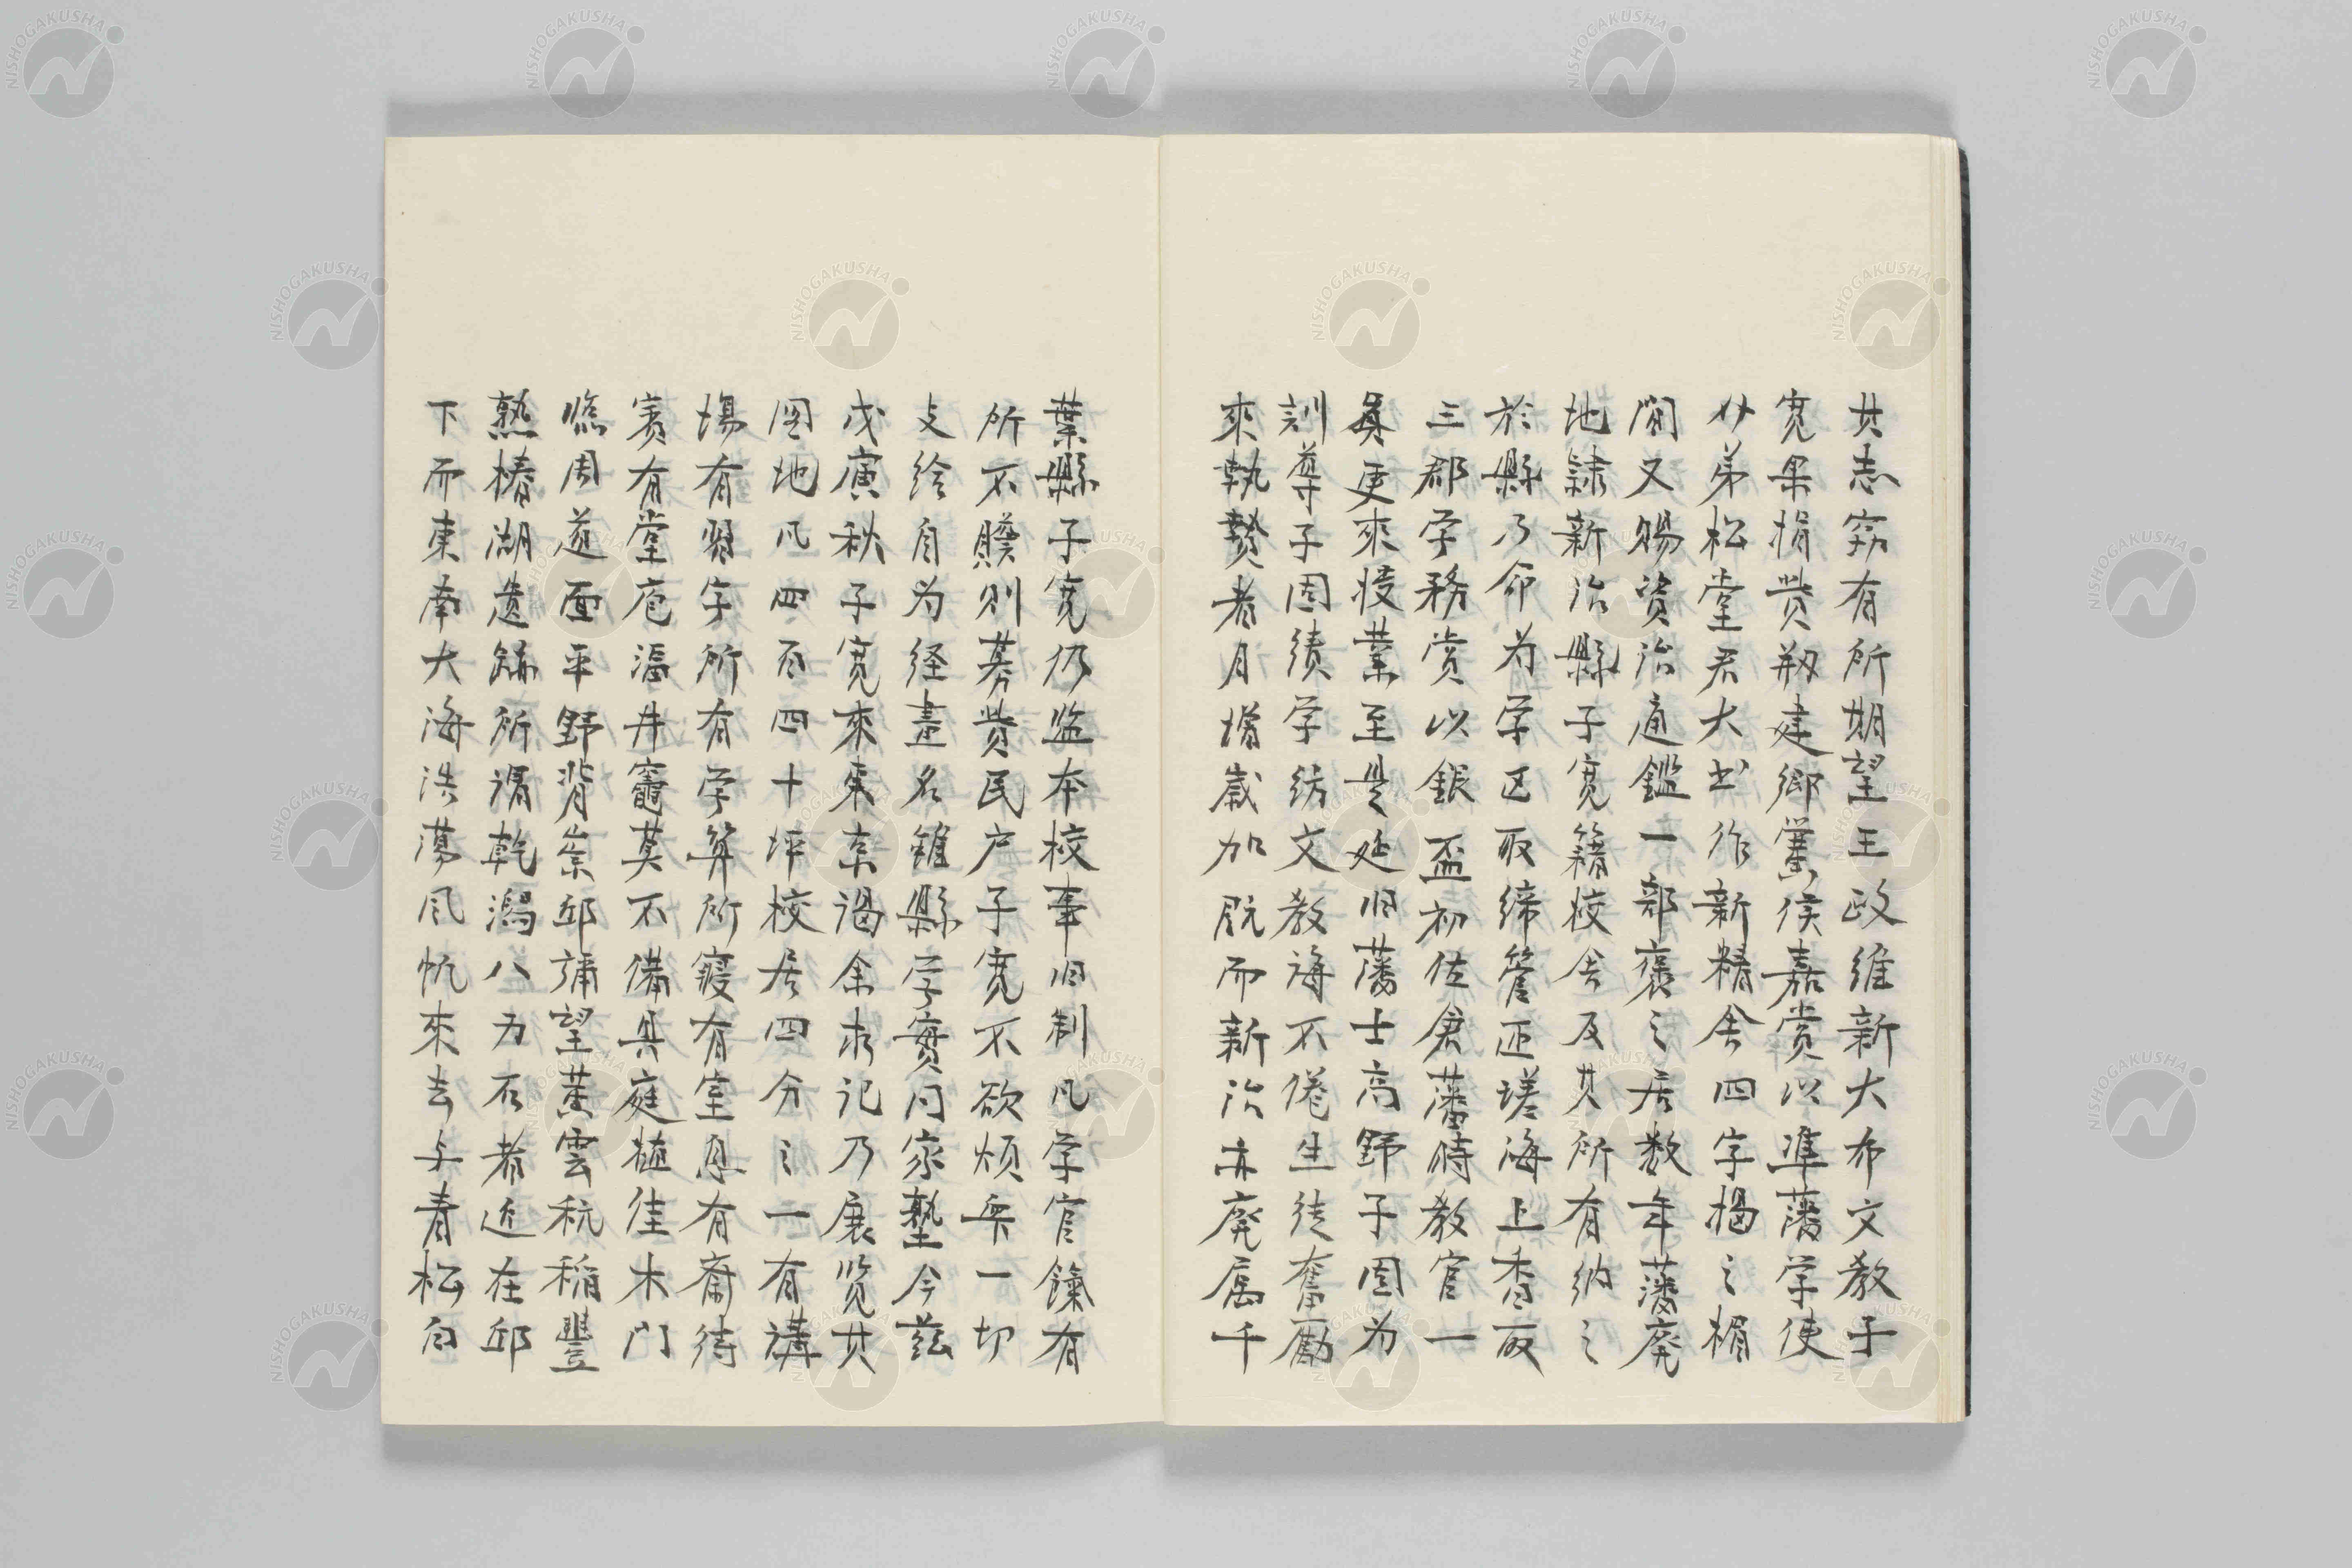 其志窃有所期望王政維新大布文教子
寛果捐貲剏建郷黌侯嘉賞以準藩学使
介弟松堂君大書作新精舎四字揭之楣
間又賜資治通鑑一部褒之居数年藩廃
地隷新治縣子寛籍校舎及其所有納之
於縣乃命为学区取締管匝瑳海上香取
三郡学務賞以銀盃初佐倉藩時教官一
員更來授業至是延旧藩士高野子固为
訓導子固績学紡文教誨不倦生徒奮勵
來執贄者月增歲加既而新治亦廃属千
葉縣子寛仍監本校事旧制凡学官餼有
所不贍則募貲民户子寛不欲煩乗一切
支給自为経畫名雖縣学實同家塾今茲
戊寅秋子寛來東京謁余求記乃展览其
图地凡四百四十坪校居四分之一有講
場有習字所有学算所寢有室息有齋待
賓有堂庖湢井竈莫不備具庭植佳木門
臨周道面平野背崇邱彌望黄雲秔稲豐
熟椿湖遺跡所謂乾潟八万石者近在邱
下而東南大海浩蕩風帆來去与青松白
NISHOGAKUSHA